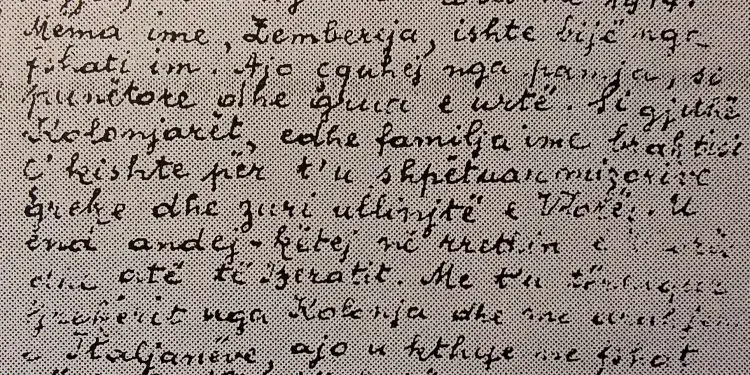 1914.
Mëma ime, Zemberija, ishte bijë nga
fshati im. Ajo çquhej nga pamja, si
punëtore dhe grua e urtë. Si gjithë
Kolonjarët, edhe familja ime braktisi
ç'kishte për t'u shpëtuar mizorive
greke dhe zuri ullinjtë e Vlorës. U
end andej-këtej në rrethin e
dhe atë të Beratit. Me t'u
grekërit nga Kolonja dhe me
e Italjanëve, ajo u kthye në fshat